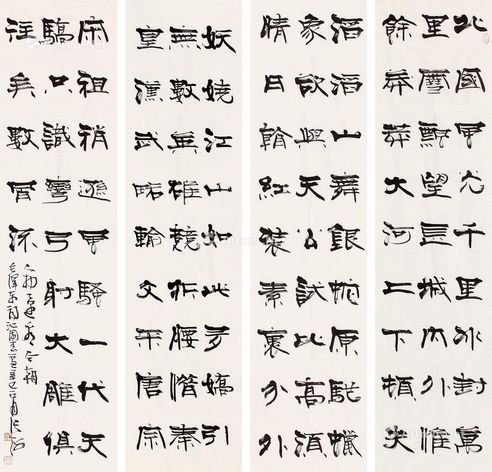 北國風光千里冰封萬
里雪飄望長城內外惟
餘莽莽大河上下頓失
滔滔山舞銀蛇原馳蠟
象欲與天公試比高須
晴日看紅裝素裹分外
妖嬈江山如此多嬌引
無數英雄競折腰惜秦
皇漢武略輸文采唐宗
宋祖稍遜風騷一代天
驕只識彎弓射大雕俱
往矣數風流
人物還看今朝
毛澤東詞沁園春